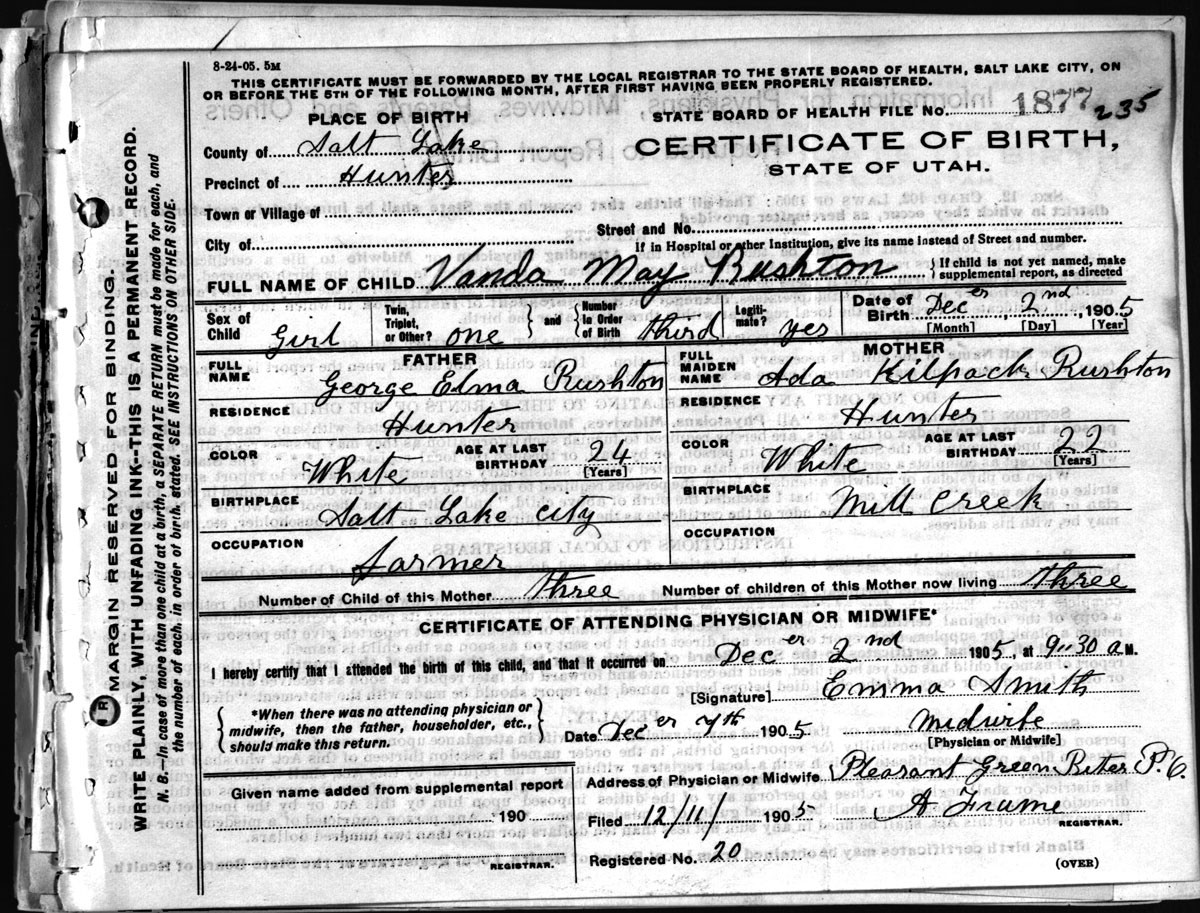 8-24-05. 5M
THIS CERTIFICATE MUST BE FORWARDED BY THE LOCAL REGISTRAR TO THE STATE BOARD OF HEALTH, SALT LAKE CITY, ON
OR BEFORE THE 5TH OF THE FOLLOWING MONTH, AFTER FIRST HAVING BEEN PROPERLY REGISTERED.
PLACE OF BIRTH
STATE BOARD OF HEALTH FILE No. 1877 235
County of Salt Lake
CERTIFICATE OF BIRTH,
Precinct of Hunter
STATE OF UTAH.
Town or Village of
Street and No.
City of
If in Hospital or other Institution, give its name instead of Street and number.
FULL NAME OF CHILD Vanda May Rushton { If child is not yet named, make
supplemental report, as directed
Sex of Child Girl Twin, Triplet, or Other? one and Number in Order of Birth third Legitimate? yes Date of Birth Decer 2nd 1905
[Month] [Day] [Year]
FATHER
FULL NAME George Elma Rushton
MOTHER
FULL MAIDEN NAME Ada Kilpack Rushton
RESIDENCE Hunter
RESIDENCE Hunter
COLOR White AGE AT LAST BIRTHDAY 24 [Years]
COLOR White AGE AT LAST BIRTHDAY 22 [Years]
BIRTHPLACE Salt Lake City
BIRTHPLACE Mill Creek
OCCUPATION Farmer
OCCUPATION
Number of Child of this Mother three Number of children of this Mother now living three
CERTIFICATE OF ATTENDING PHYSICIAN OR MIDWIFE*
I hereby certify that I attended the birth of this child, and that it occurred on Decer 2nd 1905, at 9-30 a M.
[Signature] Emma Smith
{ *When there was no attending physician or
midwife, then the father, householder, etc.,
should make this return. }
Date Decer 7th 1905 Midwife
[Physician or Midwife]
Given name added from supplemental report
Address of Physician or Midwife Pleasant Green P.O.
190
Filed 12/11/ 1905 A Frame
REGISTRAR.
REGISTRAR.
Registered No. 20
(OVER)
MARGIN RESERVED FOR BINDING.
WRITE PLAINLY, WITH UNFADING INK--THIS IS A PERMANENT RECORD.
N. B.--In case of more than one child at a birth, a SEPARATE RETURN must be made for each, and
the number of each, in order of birth, stated. SEE INSTRUCTIONS ON OTHER SIDE.